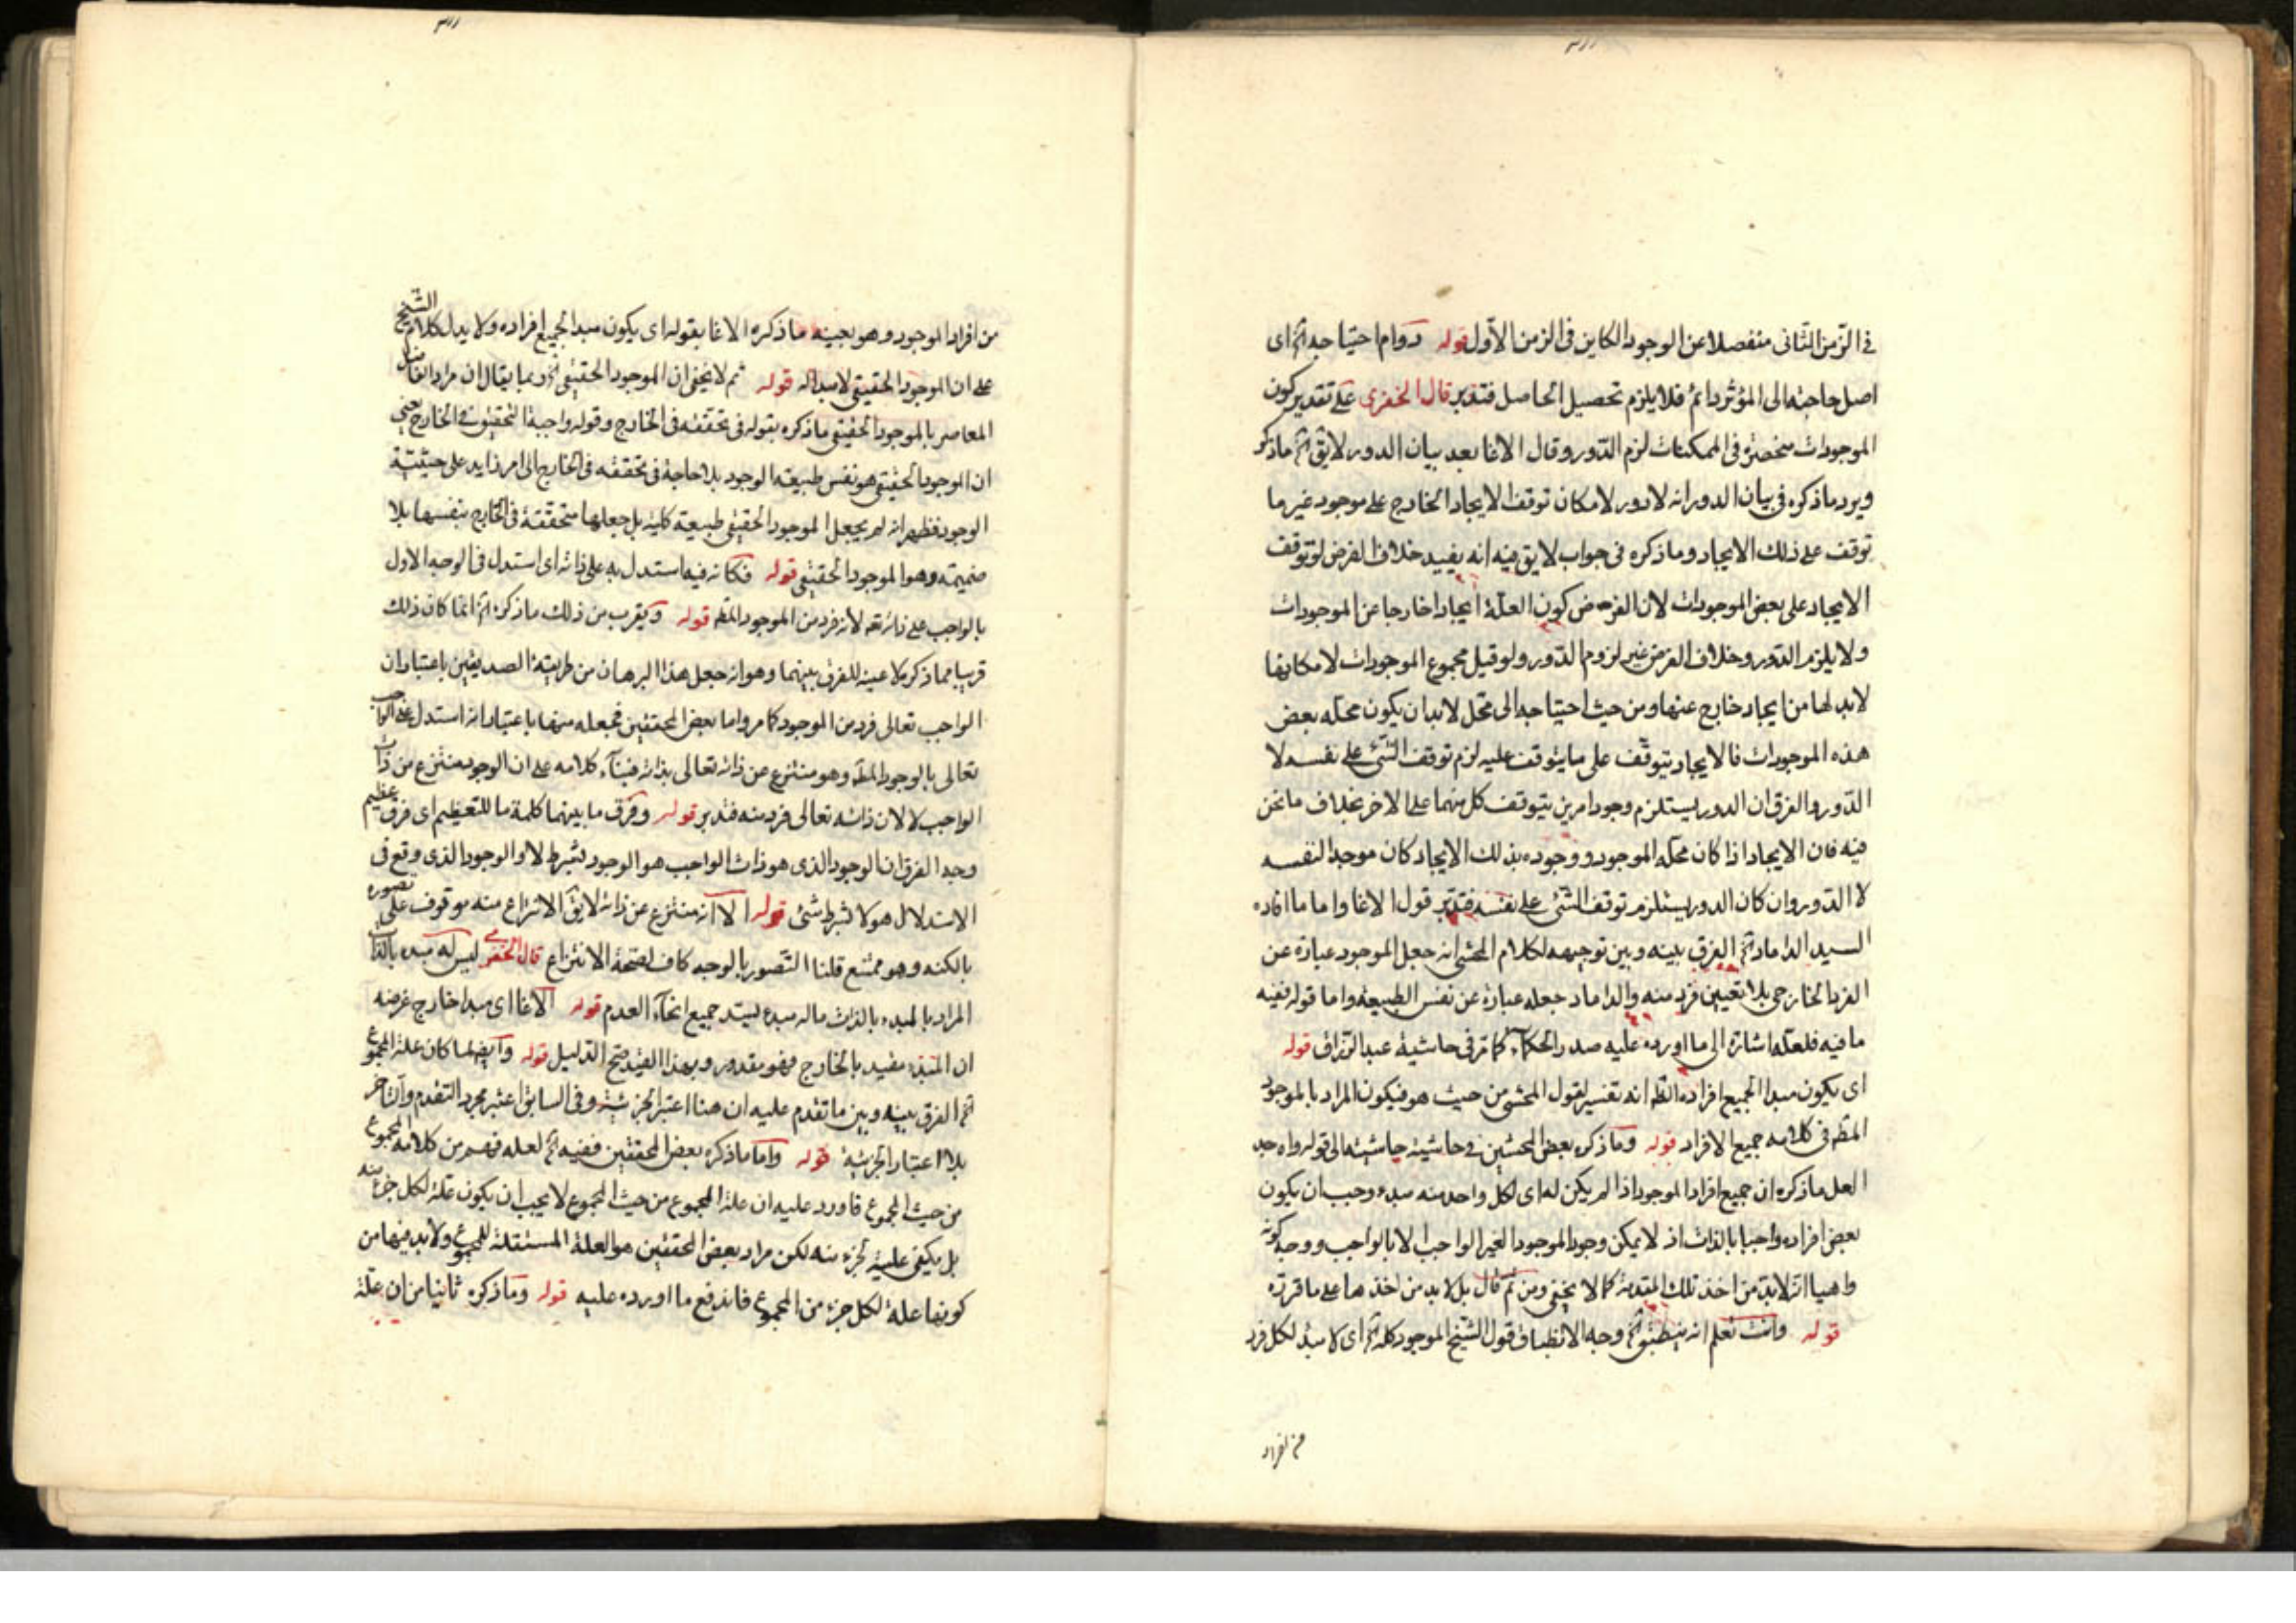 في الزمن الثاني منفصلا عن الوجود الكاين في الزمن الأول قوله دوام احتياجه آه اى
اصل حاجته الى المؤثر دائم فلا يلزم تحصيل الحاصل فتدبر قال الخفرى على تقدير كون
الموجودات منحصرة في الممكنات لزم الدور وقال الاغا بعد بيان الدور لا يق آه ما ذكر
ويرد ما ذكره في بيان الدور انه لا دور لامكان توقف الايجاد الخارج على موجود غير ما
توقف على ذلك الايجاد وما ذكره في جواب لا يق فيه انه يفيد خلاف الفرض لو توقف
الايجاد على بعض الموجودات لان الفرض كون العلة ايجادا خارجا عن الموجودات
ولا يلزم الدور وخلاف الفرض غير لزوم الدور ولو قيل مجموع الموجودات لامكانها
لابد لها من ايجاد خارج عنها ومن حيث احتياجه الى محل لابد ان يكون محله بعض
هذه الموجودات فالايجاد يتوقف على ما يتوقف عليه لزم توقف الشئ على نفسه لا
الدور والفرق ان الدور يستلزم وجود امرين يتوقف كل منهما على الاخر بخلاف ما نحن
فيه فان الايجاد اذا كان محله الموجود ووجوده بذلك الايجاد كان موجدا لنفسه
لا الدور وان كان الدور يستلزم توقف الشئ على نفسه فتدبر قول الاغا واما ما افاده
السيد الداماد آه الفرق بينه وبين توجيهه لكلام المحشى انه جعل الموجود عبارة عن
الفرد الخارجى بلا تعيين فرد منه والداماد جعله عبارة عن نفس الطبيعة واما قوله ففيه
ما فيه فلعله اشارة الى ما اورده عليه صدر الحكماء كما مر في حاشية عبد الرزاق قوله
اى يكون مبدا لجميع افراده الظ انه تفسير لقول المحشى من حيث هو فيكون المراد بالموجود
المط في كلامه جميع الافراد قوله وما ذكره بعض المحشين في حاشية حاشيته الى قوله واه جد
لعل ما ذكره ان جميع افراد الموجود اذا لم يكن له اى لكل واحد منه مبدء وجب ان يكون
بعض افراده واجبا بالذات اذ لا يمكن وجود الموجود الغير الواجب الا بالواجب ووجه كونه
واهيا انه لابد من اخذ تلك المقدمة كما لا يخفى ومن ثم قال بل لابد من اخذها على ما قررته
قوله وانت تعلم انه ينطبق آه وجه الانطباق قول الشيخ الموجود كله آه اى لا مبدء لكل فرد
من افراد
من افراد الموجود وهو بعينه ما ذكره الاغا بقوله اى يكون مبدا لجميع افراده ولا يدل كلام الشيخ
على ان الموجود الحقيقى لا مبدا له قوله ثم لا يخفى ان الموجود الحقيقى آه ربما يقال ان مراد الفاضل
المعاصر بالموجود الحقيقى ما ذكره بقوله في تحققه في الخارج وقوله واجبة التحقق في الخارج يعنى
ان الموجود الحقيقى هو نفس طبيعة الوجود بلا حاجة في تحققه في الخارج الى امر زايد على حيثية
الوجود فظهر انه لم يجعل الموجود الحقيقى طبيعة كلية بل جعلها متحققة في الخارج بنفسها بلا
ضميمة وهو الموجود الحقيقى قوله فكانه فيه استدل به على ذاته اى استدل في الوجه الاول
بالواجب على ذاته تع لانه فرد من الموجود المط قوله ويقرب من ذلك ما ذكره آه انما كان ذلك
قريبا مما ذكر لا عينه للفرق بينهما وهو انه جعل هذا البرهان من طريقة الصديقين باعتبار ان
الواجب تعالى فرد من الموجود كما مر واما بعض المحققين فجعله منها باعتبار انه استدل على الواجب
تعالى بالوجود المط وهو منتزع عن ذاته تعالى بذاته فبناء كلامه على ان الوجود منتزع من ذات
الواجب لا لان ذاته تعالى فرد منه فتدبر قوله وفرق ما بينهما كلمة ما للتعظيم اى فرق عظيم
وجه الفرق ان الوجود الذى هو ذات الواجب هو الوجود بشرط لا والوجود الذى وقع في
الاستدلال هو لا بشرط شئ قوله الا انه منتزع عن ذاته لا يق الانتزاع منه موقوف على تصوره
بالكنه وهو ممتنع قلنا التصور بالوجه كاف لصحة الانتزاع قال الخفرى ليس له مبدء بالذات
المراد بالمبدء بالذات ما له مبدء ليسد جميع انحاء العدم قوله الاغا اى مبدا خارج غرضه
ان المبدء مقيد بالخارج فهو مقدور وبهذا القيد يتم الدليل قوله وايضا لما كان علة المجموع
آه الفرق بينه وبين ما تقدم عليه ان هنا اعتبر الجزئية وفي السابق اعتبر مجرد التقدم والتاخر
بلا اعتبار الجزئية قوله واما ما ذكره بعض المحققين ففيه آه لعله فهم من كلامه المجموع
من حيث المجموع فاورد عليه ان علة المجموع من حيث المجموع لا يجب ان يكون علة لكل جزء منه
بل يكفى علية لجزء منه لكن مراد بعض المحققين هو العلة المستقلة للمجموع ولابد فيها من
كونها علة لكل جزء من المجموع فاندفع ما اورده عليه قوله وما ذكره ثانيا من ان علة